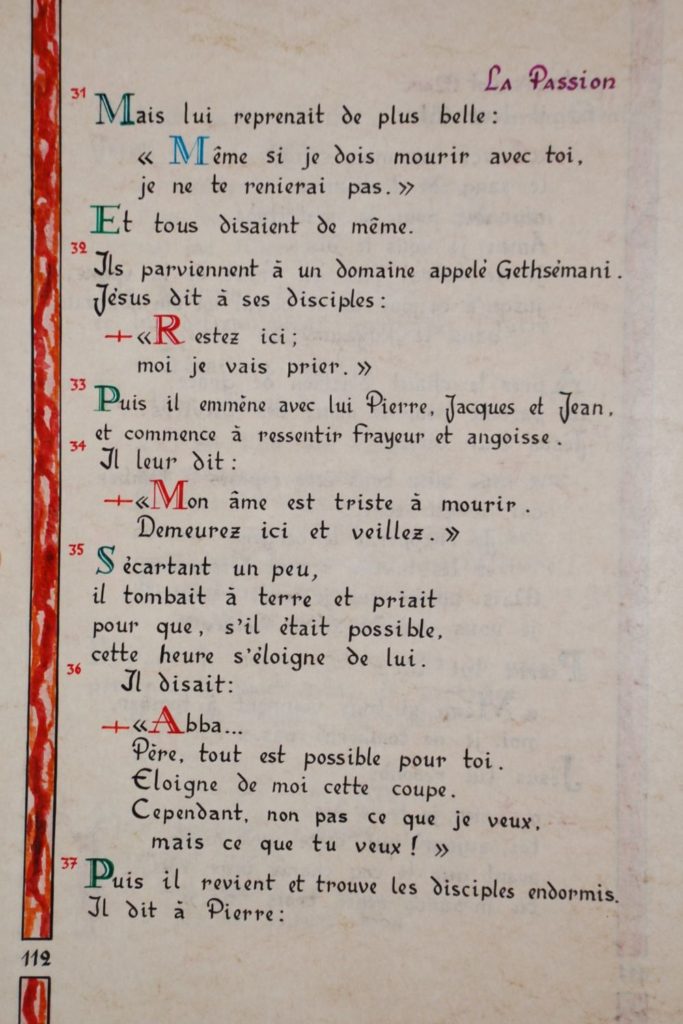 La Passion
31
Mais lui reprenait de plus belle :
« Même si je dois mourir avec toi,
je ne te renierai pas. »
Et tous disaient de même.
32
Ils parviennent à un domaine appelé Gethsémani.
Jésus dit à ses disciples :
+ « Restez ici ;
moi je vais prier. »
33
Puis il emmène avec lui Pierre, Jacques et Jean,
et commence à ressentir frayeur et angoisse.
34
Il leur dit :
+ « Mon âme est triste à mourir.
Demeurez ici et veillez. »
35
Sécartant un peu,
il tombait à terre et priait
pour que, s'il était possible,
cette heure s'éloigne de lui.
36
Il disait :
+ « Abba...
Père, tout est possible pour toi.
Eloigne de moi cette coupe.
Cependant, non pas ce que je veux,
mais ce que tu veux ! »
37
Puis il revient et trouve les disciples endormis.
Il dit à Pierre :
112